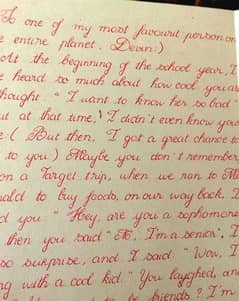 To one of my most favourit person on
e entire planet. Devin:)
At the beginning of the school year, I
e heard so much about how cool you are
thought "I want to know her so bad"
ut at that time, I didn't even know your
e:( But then, I got a great chance to
to you:) Maybe you don't remember
on a Target trip, when we ran to Mc
nald to buy foods, on our way back, I
d you. "Hey, are you a sophomore
then you said "No, I'm a senior", I
so surprise, and I said. "Wow, I
ng with a cool kid." You laughed, an
to be friends? I'm